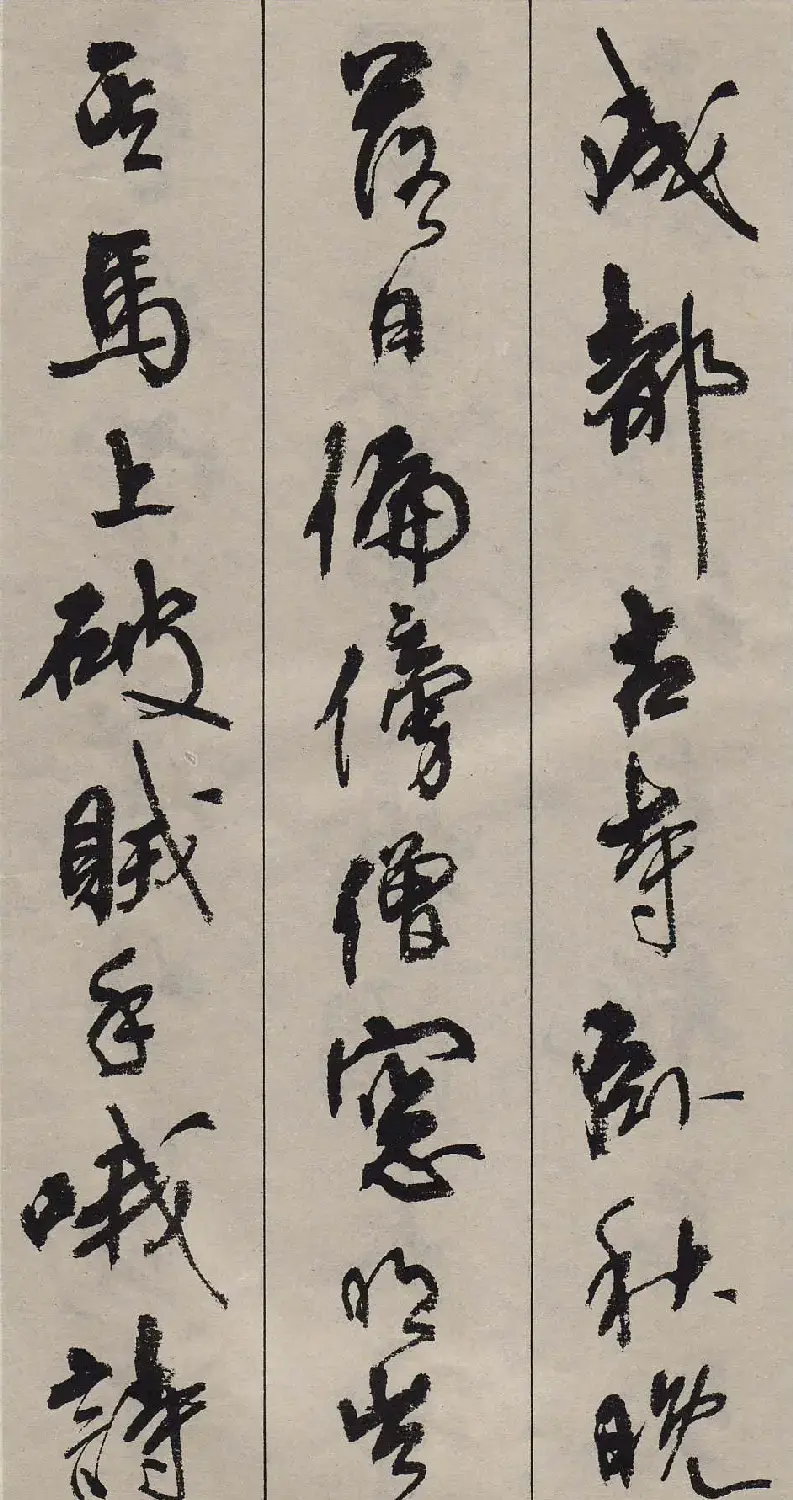 成都古寺臥秋晚
落日偏傍僧窻明豈
其馬上破賊手哦詩